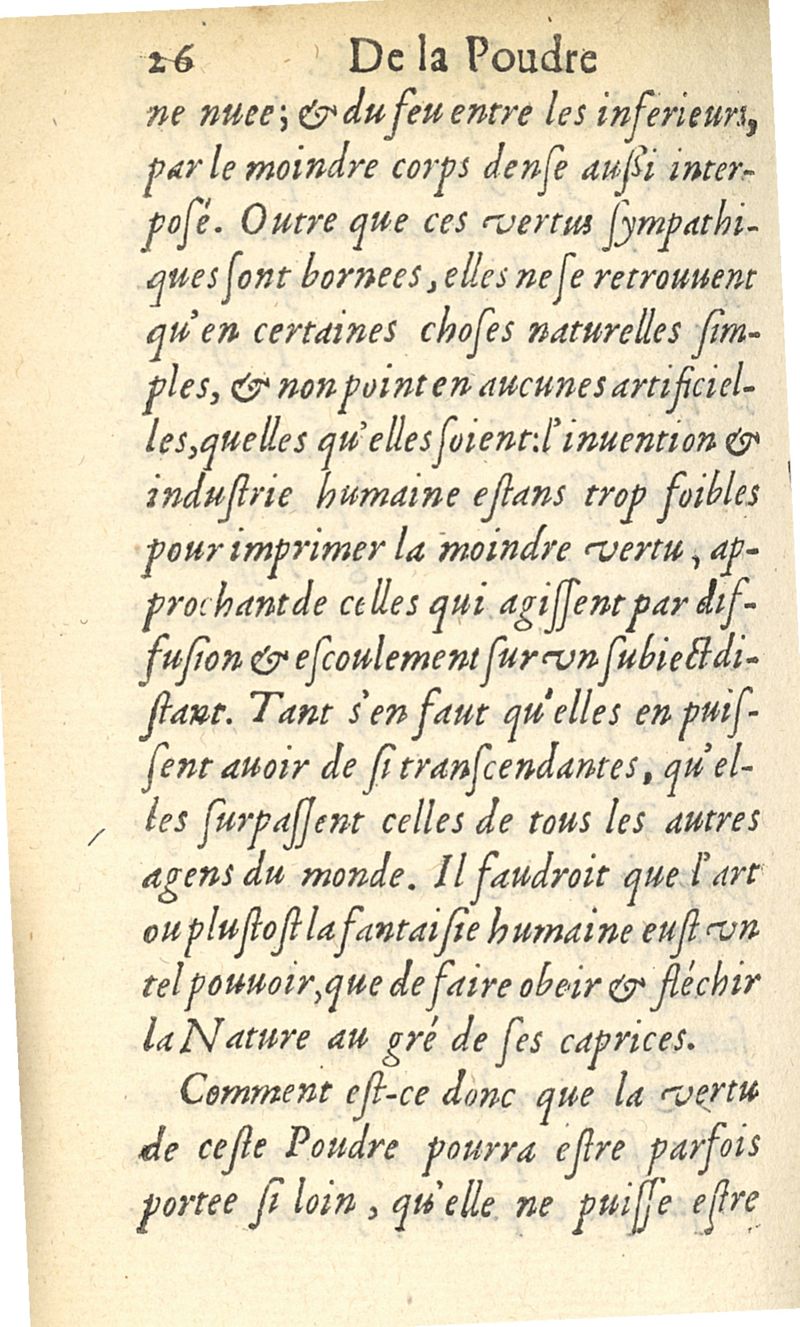 26 De la Poudre
ne nuee; & du feu entre les inferieurs,
par le moindre corps denſe auſſi inter-
poſé. Outre que ces vertus ſympathi-
ques ſont bornees, elles ne ſe retrouuent
qu'en certaines choſes naturelles ſim-
ples, & non point en aucunes artificiel-
les, quelles qu'elles ſoient: l'inuention &
induſtrie humaine eſtans trop foibles
pour imprimer la moindre vertu, ap-
prochant de celles qui agiſſent par dif-
fuſion & eſcoulement ſur vn ſubiect di-
ſtant. Tant s'en faut qu'elles en puiſ-
ſent auoir de ſi tranſcendantes, qu'el-
les ſurpaſſent celles de tous les autres
agens du monde. Il faudroit que l'art
ou pluſtoſt la fantaiſie humaine euſt vn
tel pouuoir, que de faire obeir & fléchir
la Nature au gré de ſes caprices.
Comment eſt-ce donc que la vertu
de ceſte Poudre pourra eſtre parfois
portee ſi loin, qu'elle ne puiſſe eſtre